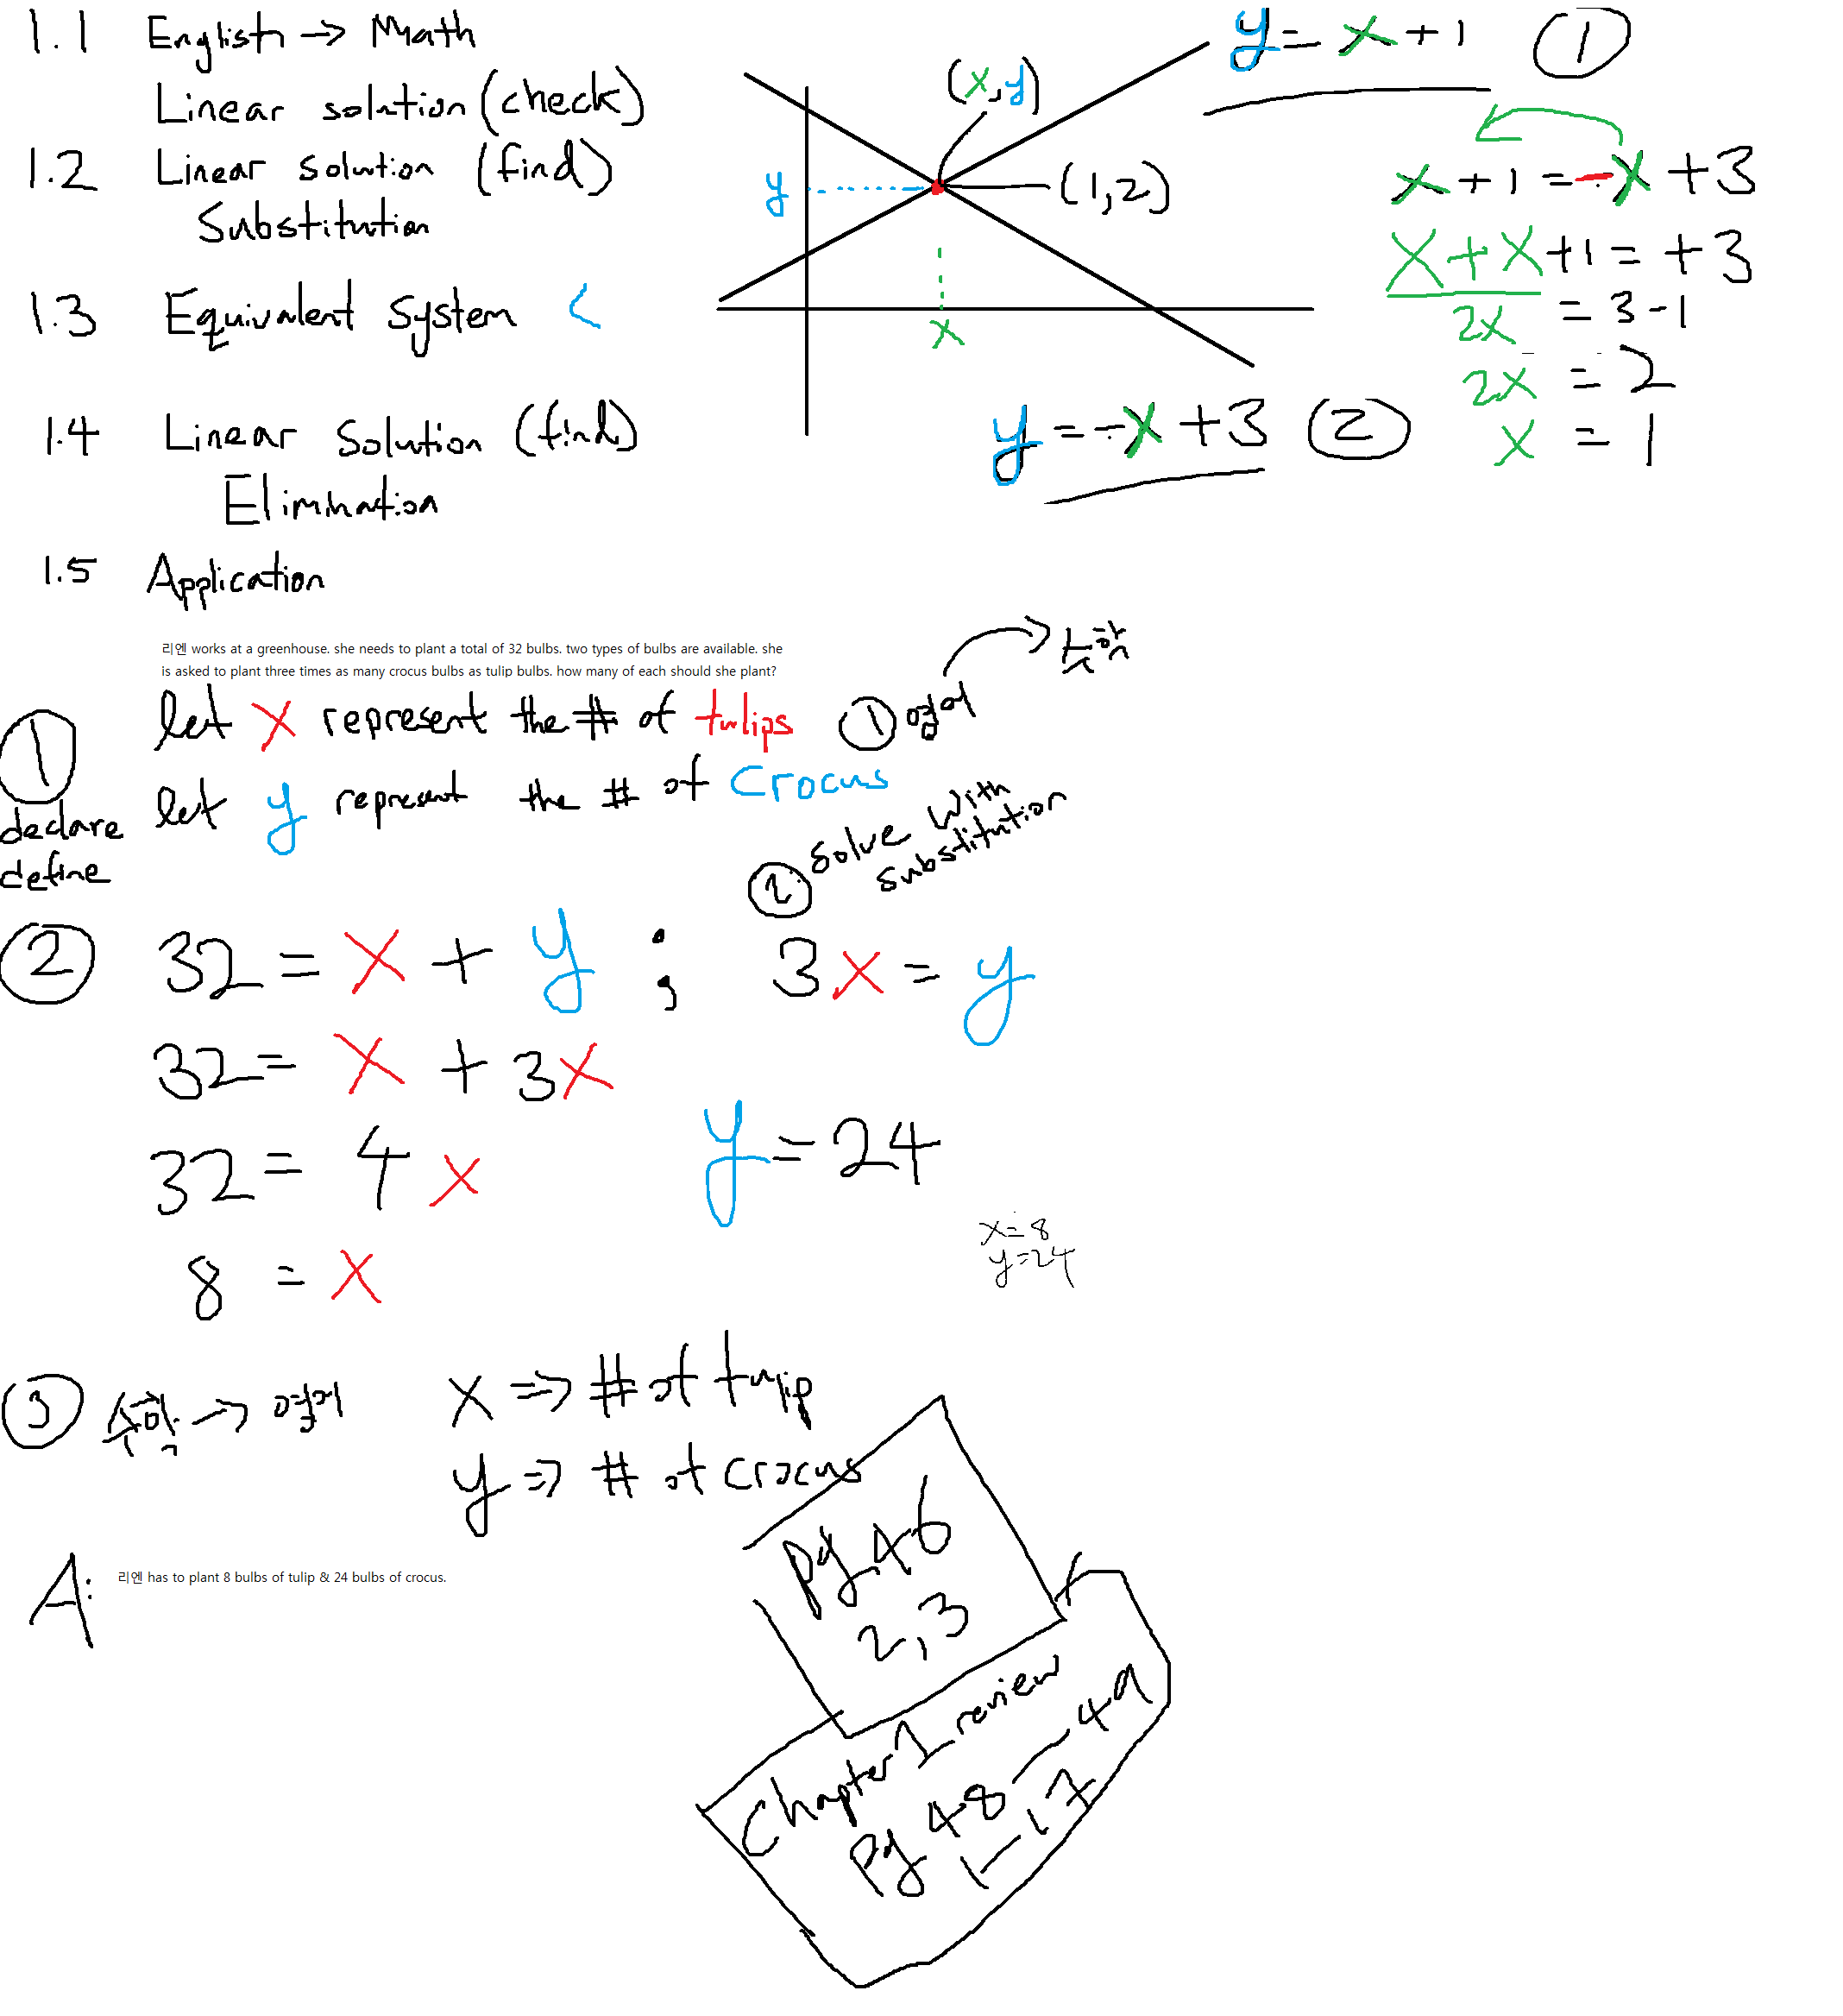 1.1 English → Math
Linear solution (check)
1.2 Linear Solution (find)
Substitution
1.3 Equivalent System <
1.4 Linear Solution (find)
Elimination
1.5 Application
(x,y)
y
(1,2)
x
y = x + 1 ①
y = -x + 3 ②
x + 1 = -x + 3
x + x + 1 = + 3
2x = 3 - 1
2x = 2
x = 1
리엔 works at a greenhouse. she needs to plant a total of 32 bulbs. two types of bulbs are available. she
is asked to plant three times as many crocus bulbs as tulip bulbs. how many of each should she plant?
① 영어 → 수학
① let x represent the # of tulips
let y represent the # of Crocus
declare
define
② Solve with
substitution
② 32 = x + y ; 3x = y
32 = x + 3x
32 = 4x
8 = x
y = 24
x = 8
y = 24
③ 수학 → 영어
x ⇒ # of tulip
y ⇒ # of crocus
A: 리엔 has to plant 8 bulbs of tulip & 24 bulbs of crocus.
pg 46
2,3
Chapter 1 review
pg 48 — 49
1 — 17